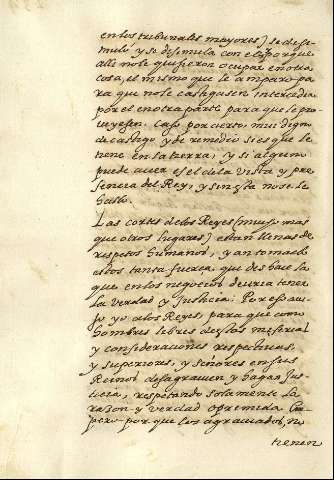 en los tribunales mayores) se disi-
mulo y se disimula con el solo porque
alli no le quisieron ocupar en otra
cosa, el mismo que le amparo pa-
ra que no le castiguasen intercedia
por el en otra parte para que le pro-
uejesen. Caso por cierto, mui digno
de castigo y de remedio si es que le
tiene en la tierra, y si alguno
puede auer es el de la vista y pre-
sencia del Rey, y sin esta no se le
hallo.
Las cortes de los Reyes (mucho mas
que otros lugares) estan llenas de
respetos humanos, y an tomado
estos tanta fuerça, que deshace la
que en los negocios deuria tener
la verdad y Justicia: Por esso aui-
so yo a los Reyes, para que como
hombres libres destas miserias
y consideraciones respectiuas,
y superiores, y señores en sus
Reinos desagrauien y hagan jus-
ticia, respetando solamente la
razon y verdad oprimida
pero porque los agrauiados, no
tienen